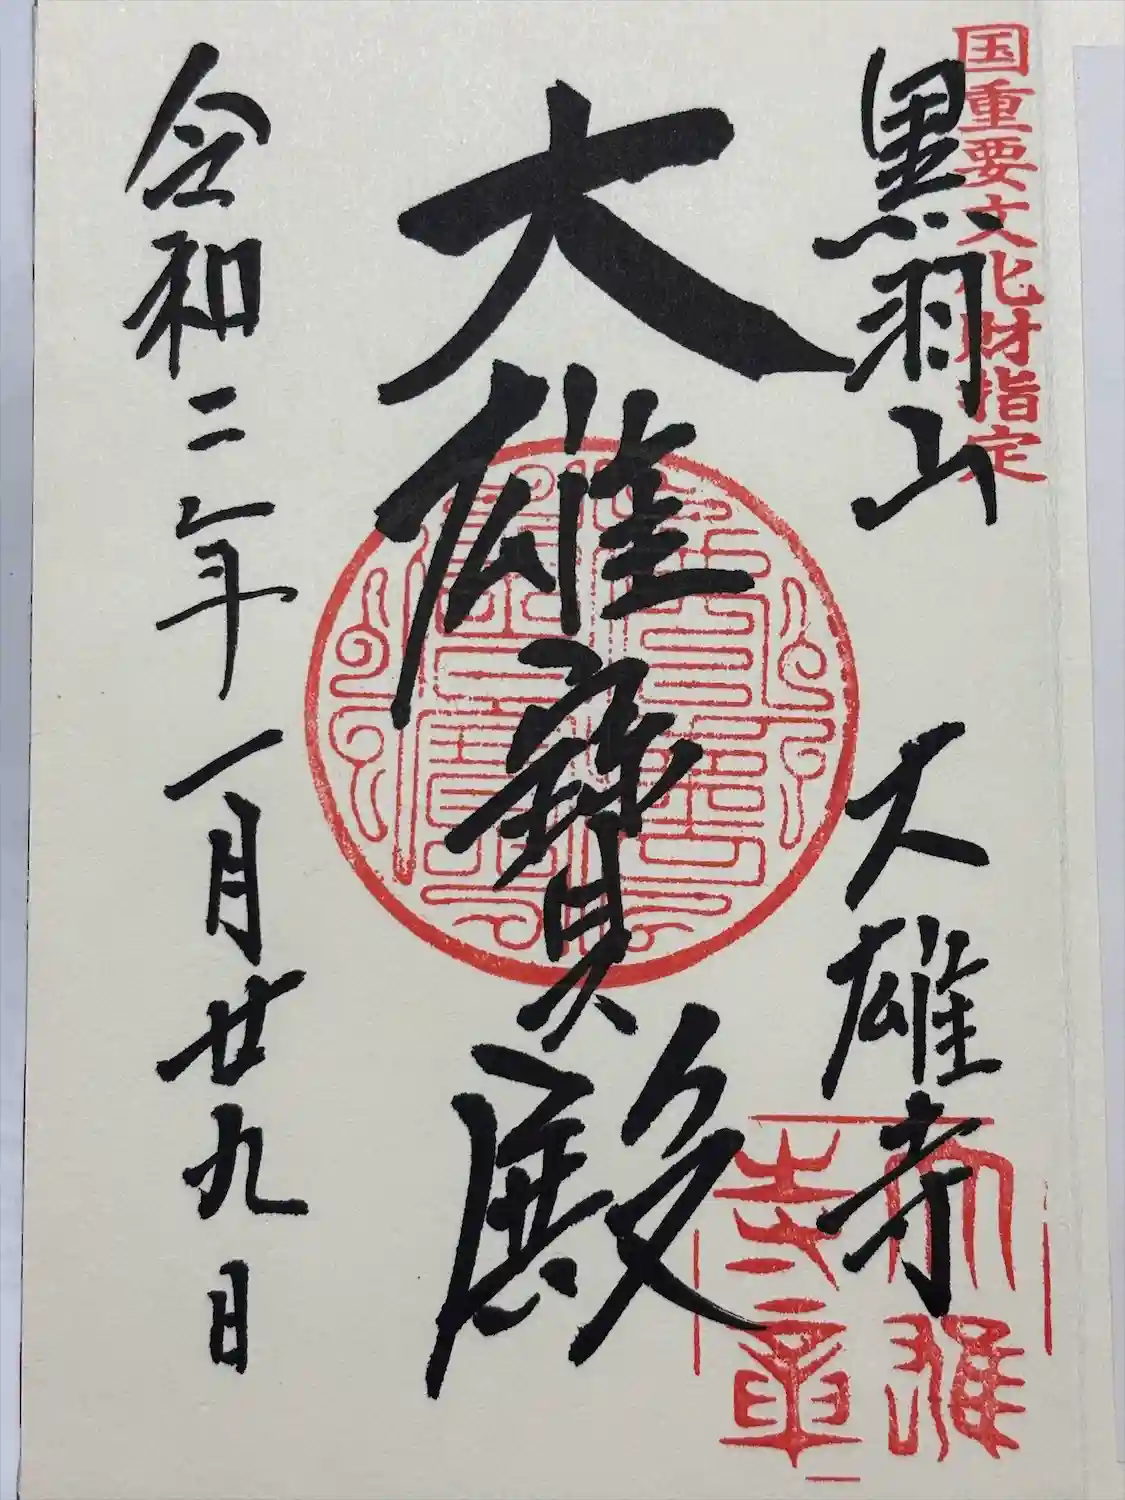 国重要文化財指定
黒羽山 大雄寺
大雄寳殿
令和二年一月廿九日
大雄
寺章